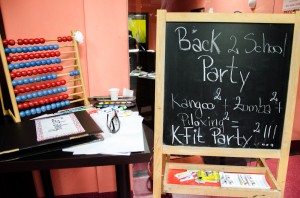 Back 2 School
Party
Kangoo + Zumba +
Piloxing =
K-Fit Party !!!